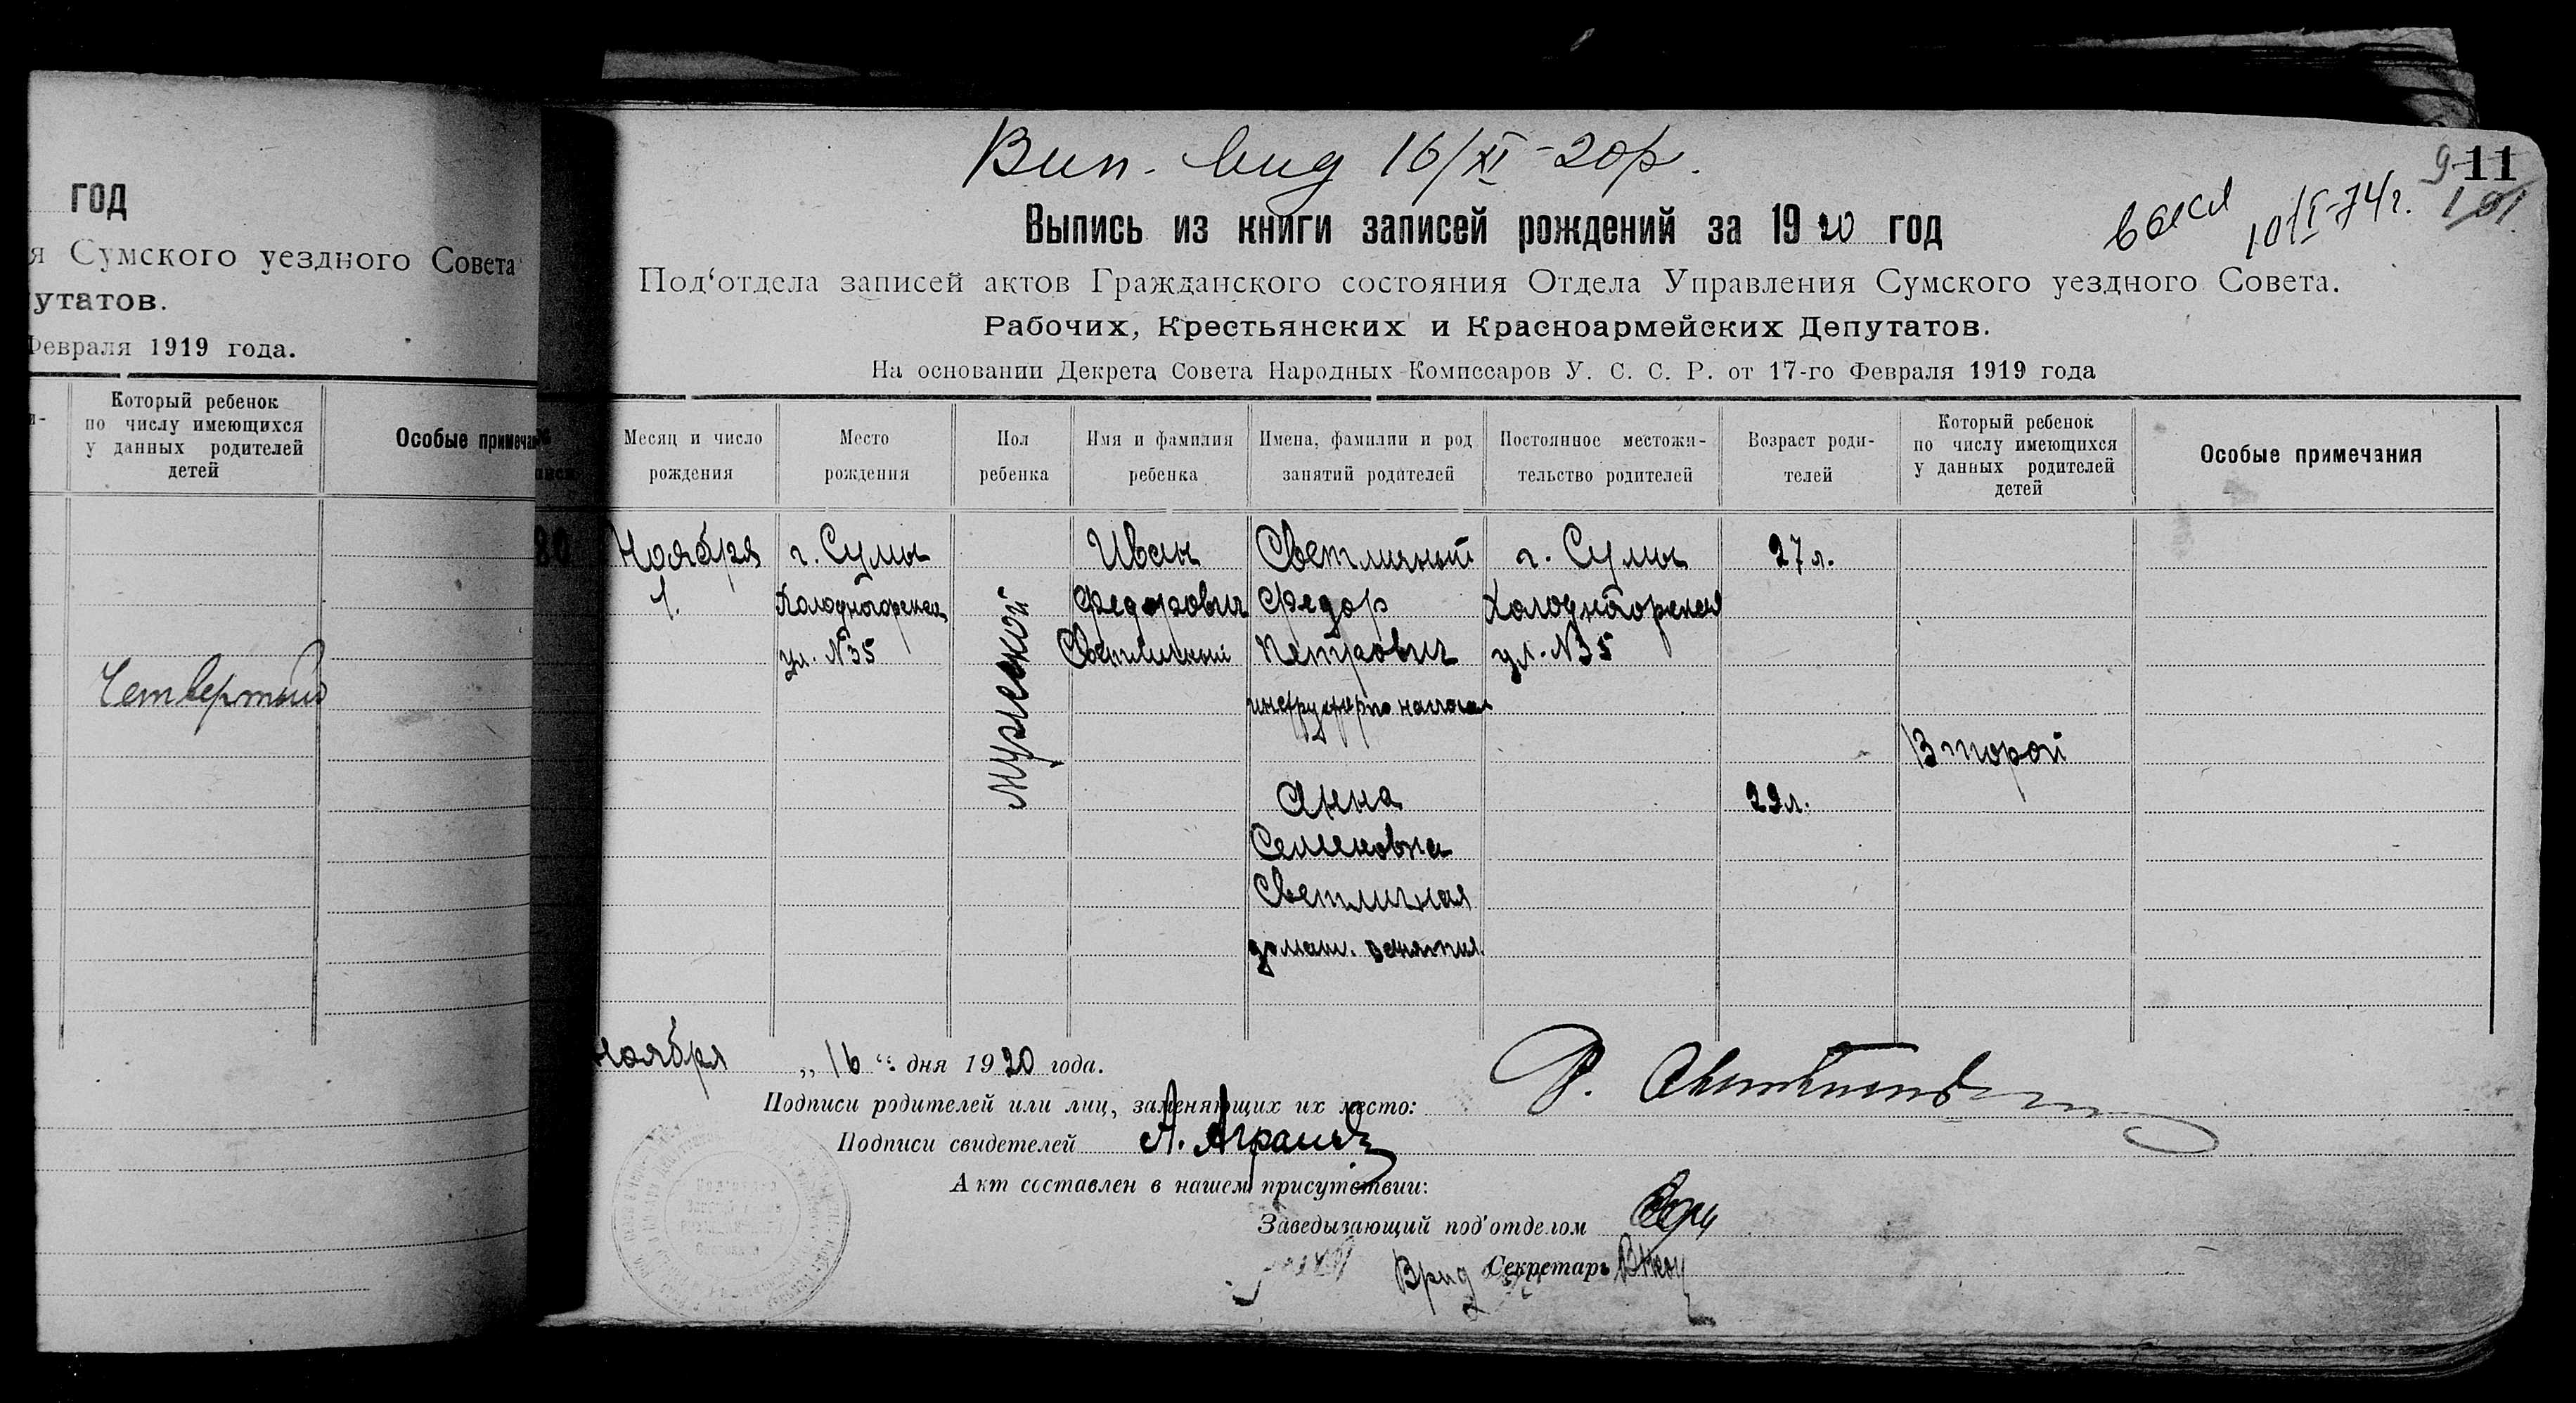 год
я Сумского уездного Совета
утатов.
Февраля 1919 года.
Который ребенок
по числу имеющихся
у данных родителей
детей
Особые примечан
Четвертый
Вип. вид 16/XI-20р.
11
101
10/I-74г.
Выпись из книги записей рождений за 1920 год
Под‘отдела записей актов Гражданского состояния Отдела Управления Сумского уездного Совета.
Рабочих, Крестьянских и Красноармейских Депутатов.
На основании Декрета Совета Народных Комиссаров У. С. С. Р. от 17-го Февраля 1919 года
Месяц и число
рождения
Место
рождения
Пол
ребенка
Имя и фамилия
ребенка
Имена, фамилии и род
занятий родителей
Постоянное местожи-
тельство родителей
Возраст роди-
телей
Который ребенок
по числу имеющихся
у данных родителей
детей
Особые примечания
Ноября
1.
г. Сумы
Холодногорская
ул. №35
Мужеской
Иван
Федорович
Светличный
Светличный
Федор
Петрович
Анна
Семеновна
Светличная
домаш. занятия
г. Сумы
Холодногорская
ул. №35
27 л.
29 л.
Второй
Ноября „16“ дня 1920 года.
Подписи родителей или лиц, заменяющих их место:
Подписи свидетелей
Акт составлен в нашем присутствии:
Заведывающий под‘отделом
Врид Секретарь